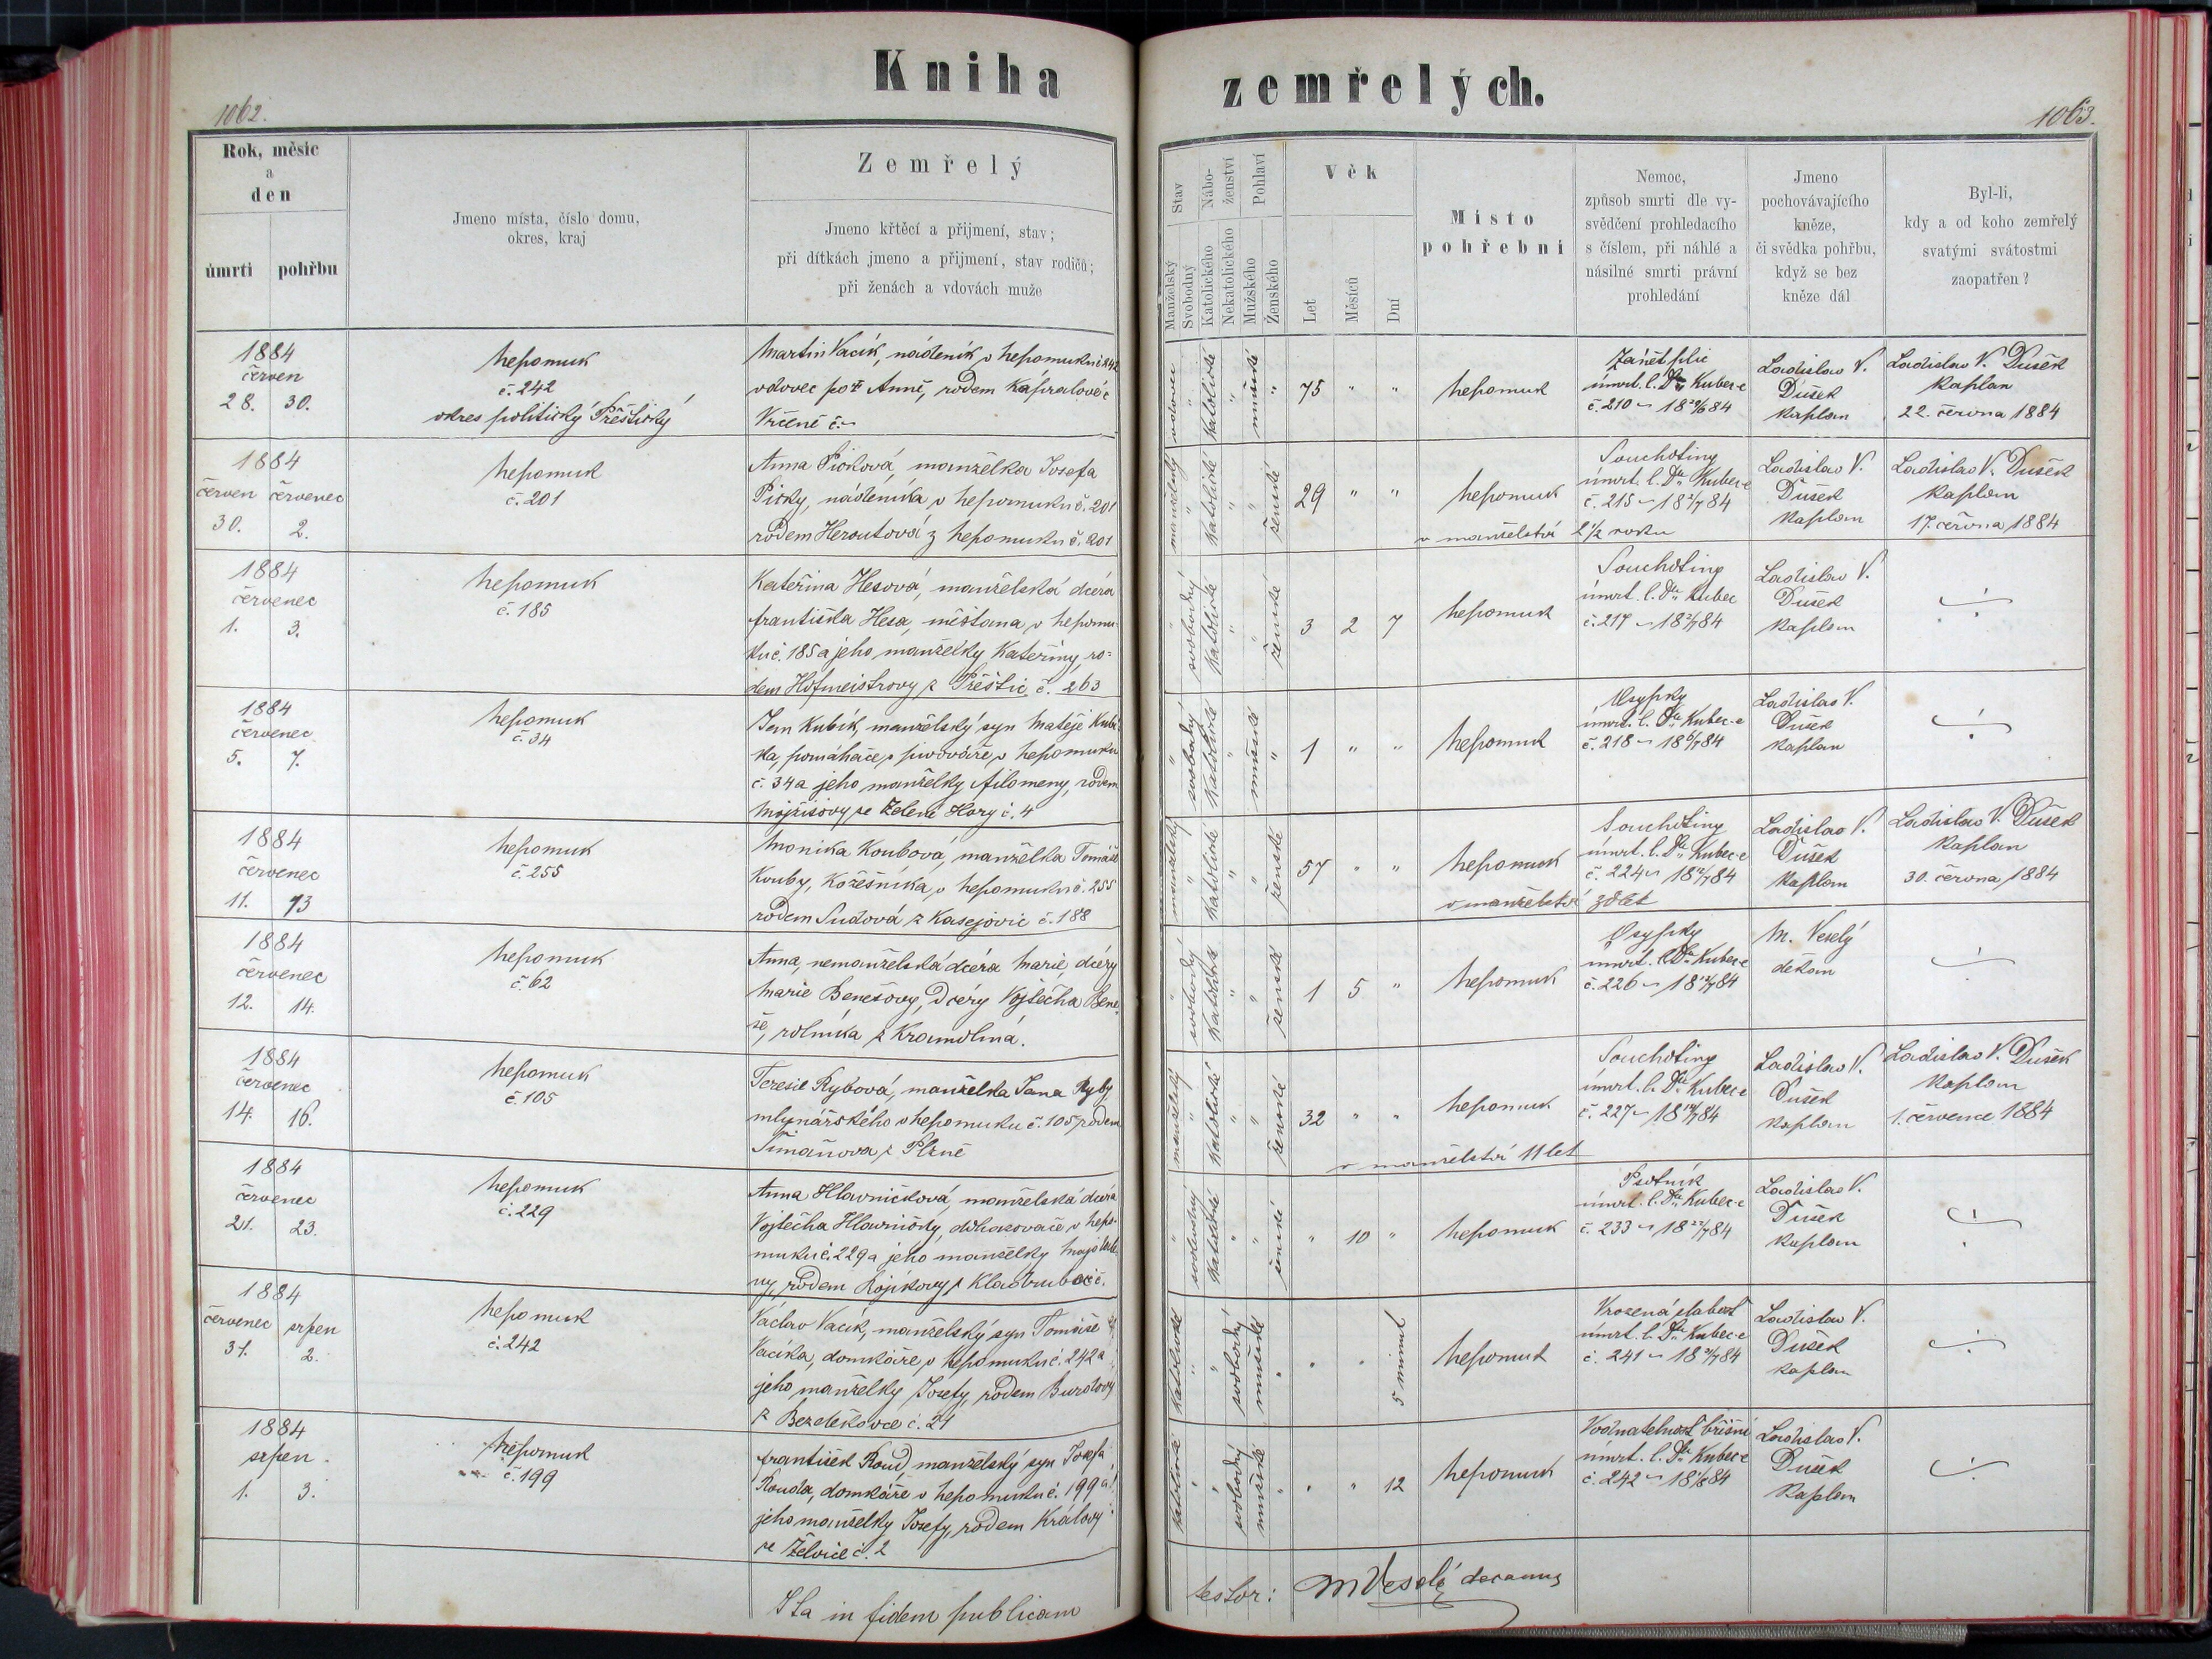 Kniha zemřelých.
1062.
1063.
Rok, měsíc
a
den
úmrtí pohřbu
Jmeno místa, číslo domu,
okres, kraj
Zemřelý
Jmeno křtěcí a přijmení, stav;
při dítkách jmeno a přijmení, stav rodičů;
při ženách a vdovách muže
Stav
Manželský
Svobodný
Nábo-
ženství
Katolického
Nekatolického
Pohlaví
Mužského
Ženského
Věk
Let
Měsíců
Dní
Místo
pohřební
Nemoc,
způsob smrti dle vy-
svědčení prohledacího
s číslem, při náhlé a
násilné smrti právní
prohledání
Jmeno
pochovávajícího
kněze,
či svědka pohřbu,
když se bez
kněze dál
Byl-li,
kdy a od koho zemřelý
svatými svátostmi
zaopatřen?
1884
červen
28. 30.
Nepomuk
č. 242
okres politický Přeštický
Martin Vacík, nádeník v Nepomuku č 242
vdovec po Anně, rodem Kašparalové
Vrčeně č.
vdovec
katolické
mužské
75 " "
Nepomuk
Zánět plic
úmrt. l. Dra Kubec-e
č. 210 – 18 29/6 84
Ladislav V.
Dušek
kaplan
Ladislav V. Dušek
kaplan
22. června 1884
1884
červen červenec
30. 2.
Nepomuk
č. 201
Anna Picková, manželka Josefa
Picky, nádeníka v Nepomuku č. 201
rodem Heroutová z Nepomuku č. 201
manželský
katolické
ženské
29 " "
Nepomuk
v manželství 2 1/2 roku
Souchotiny
úmrt. l. Dra Kubec-e
č. 215 – 18 1/7 84
Ladislav V.
Dušek
kaplan
Ladislav V. Dušek
kaplan
17. června 1884
1884
červenec
1. 3.
Nepomuk
č. 185
Kateřina Hesová, manželská dcera
Františka Hesa, měšťana v Nepomu-
ku č. 185 a jeho manželky Kateřiny, ro-
dem Hofmeistrovy z Přeštic č. 263
svobodný
katolické
ženské
3 2 7
Nepomuk
Souchotiny
úmrt. l. Dra Kubec
č. 217 – 18 2/7 84
Ladislav V.
Dušek
kaplan
1884
červenec
5. 7.
Nepomuk
č. 34
Jan Kubík, manželský syn Matěje Kubí-
ka, pomáhače v pivováře v Nepomuku
č. 34 a jeho manželky Filomeny, rodem
Mojžíšovy ze Zelené Hory č. 4
svobodný
katolické
mužské
1 " "
Nepomuk
Osypky
úmrt. l. Dra Kubec-e
č. 218 – 18 6/7 84
Ladislav V.
Dušek
kaplan
1884
červenec
11. 13
Nepomuk
č. 255
Monika Koubová, manželka Tomáše
Kouby, kožešníka v Nepomuku č. 255
rodem Sudová z Kasejovic č. 188
manželský
katolické
ženské
57 " "
Nepomuk
v manželství let
Souchotiny
úmrt. l. Dra Kubec-e
č. 224 – 18 12/7 84
Ladislav V.
Dušek
kaplan
Ladislav V. Dušek
kaplan
30. června 1884
1884
červenec
12. 14.
Nepomuk
č. 62
Anna, nemanželská dcéra Marie, dcéry
Marie Benešovy, dcéry Vojtěcha Bene-
še, rolníka z Kramolína.
svobodný
katolické
ženské
1 5 "
Nepomuk
Osypky
úmrt. l. Dra Kubec-e
č. 226 – 18 12/7 84
M. Veselý
děkan
1884
červenec
14. 16.
Nepomuk
č. 105
Terezie Rybová, manželka Jana Ryby,
mlynářského v Nepomuku č. 105 rodem
Šimáňova z Plzně
manželský
katolické
ženské
32 " "
Nepomuk
v manželství 11 let
Souchotiny
úmrt. l. Dra Kubec-e
č. 227 – 18 14/7 84
Ladislav V.
Dušek
kaplan
Ladislav V. Dušek
kaplan
1. července 1884
1884
červenec
21. 23.
Nepomuk
č. 229
Anna Hlavničková, manželská dcéra
Vojtěcha Hlavničky, dohazovače v Nepo-
muku č. 229 a jeho manželky
ny, rodem Rojíkovy z Kladrubce č.
svobodný
katolické
ženské
" 10 "
Nepomuk
Psotník
úmrt. l. Dra Kubec-e
č. 233 – 18 22/7 84
Ladislav V.
Dušek
kaplan
1884
červenec srpen
31. 2.
Nepomuk
č. 242
Václav Vacík, manželský syn Tomáše
Vacíka, domkáře v Nepomuku č. 242 a
jeho manželky Josefy, rodem Burdovy
z Bezděkovce č. 21
katolické
svobodný
mužské
" " 5 minut
Nepomuk
Vrozená slabost
úmrt. l. Dra Kubec-e
č. 241 – 18 31/7 84
Ladislav V.
Dušek
kaplan
1884
srpen
1. 3.
Nepomuk
č. 199
František Roud, manželský syn Josefa
Rouda, domkáře v Nepomuku č. 199 a
jeho manželky Josefy, rodem Královy
ze Želvice č. 2
katolické
svobodný
mužské
" " 12
Nepomuk
Vodnatelnost břišní
úmrt. l. Dra Kubec-e
č. 242 – 18 1/8 84
Ladislav V.
Dušek
kaplan
Ita in fidem publicam
testor: M Veselý decanus